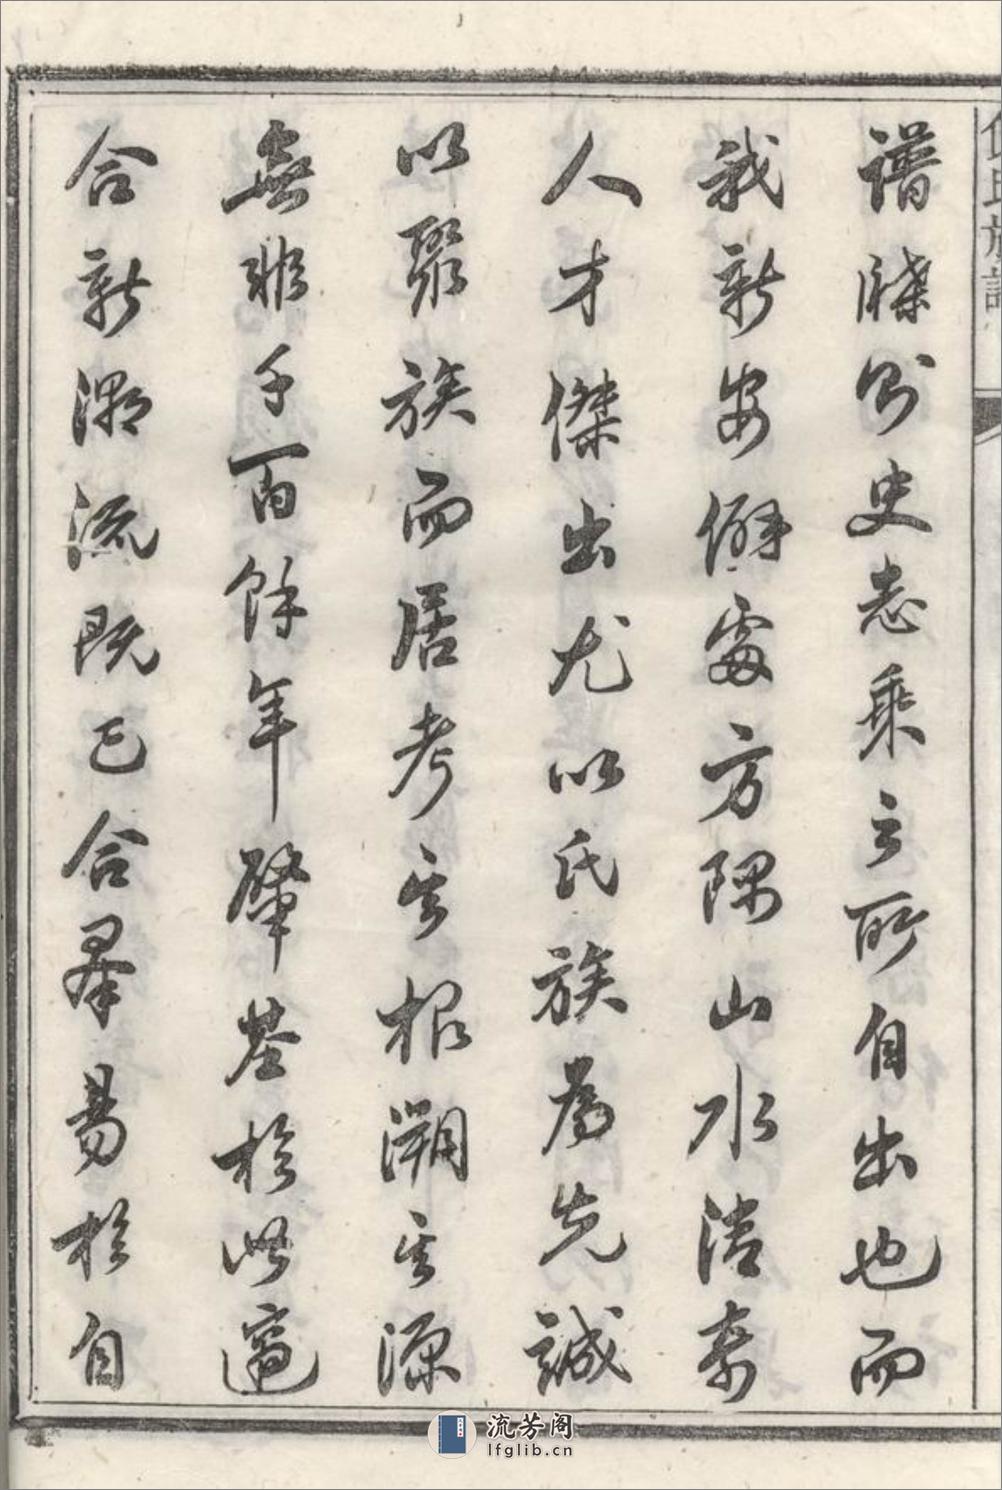 氏族譜
譜牒則史志乘之所自出也而
我新安僻處方隅山水清奇
人才傑出尤以氏族為先誠
以聚族而居考其根溯其源
無非千百餘年肇基於此適
合新潮流既已合羣易於自
流芳阁
lfglib.cn